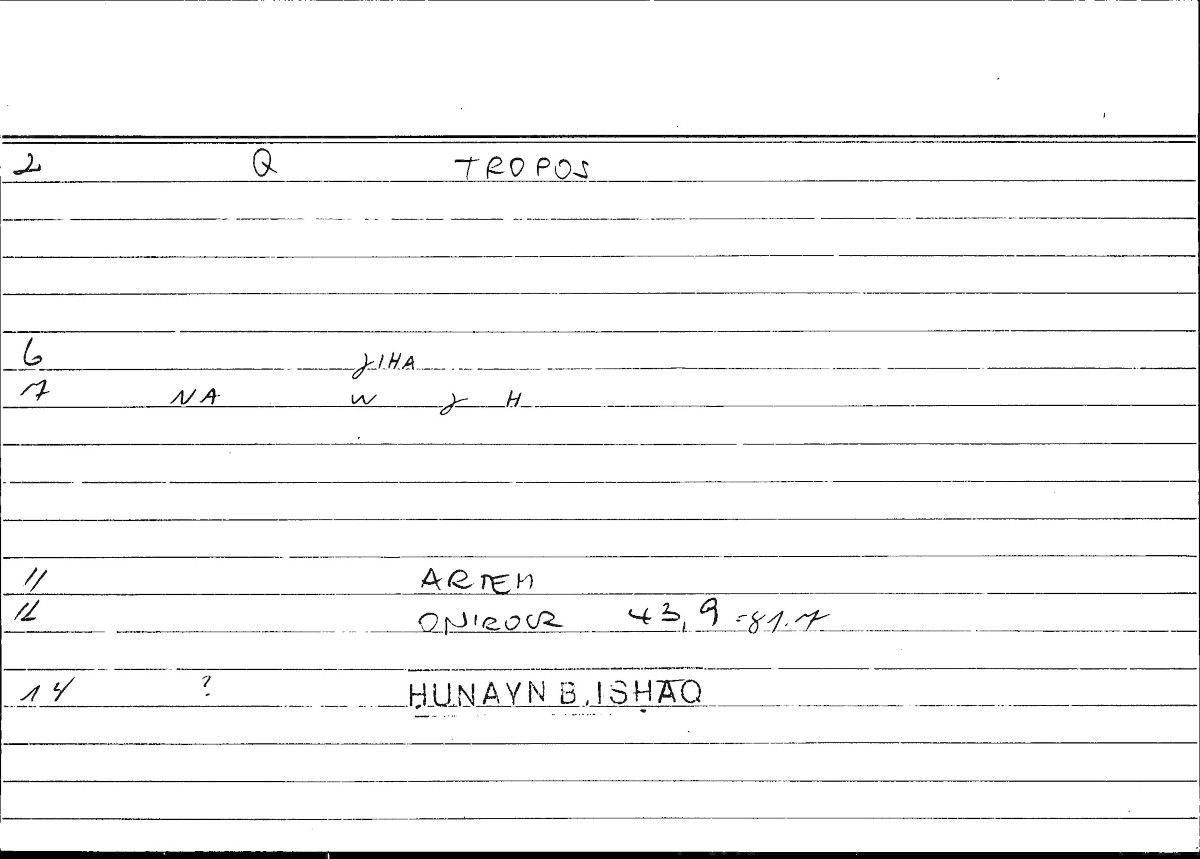 2 Q TROPOS
6 JIHA
7 NA W J H
11 ARTEM
12 ONIROCR 43,9 = 81.7
14 ? ḤUNAYN B. ISḤĀQ